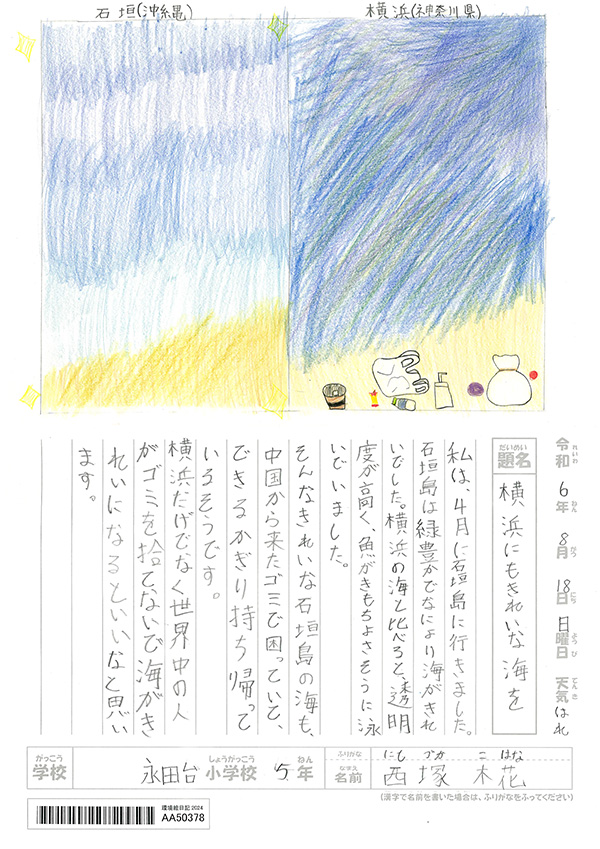 石垣(沖縄)
横浜(神奈川県)
令和6年8月18日日曜日 天気 はれ
れいわ ねん がつ にち ようび てんき
だいめい
題名
横浜にもきれいな海を
私は、4月に石垣島に行きました。
石垣島は緑豊かでなにより海がきれ
いでした。横浜の海と比べると、透明
度が高く、魚がきもちよさそうに泳
いでいました。
そんなきれいな石垣島の海も、
中国から来たゴミで困っていて、
できるかぎり持ち帰って
いろそうです。
横浜だけでなく世界中の人
がゴミを捨てないで海がき
れいになるといいなと思い
ます。
がっこう
学校
永田台
しょうがっこう
小学校
5
ねん
年
ふりがな
にし づか こ はな
なまえ
名前
西塚木花
(漢字で名前を書いた場合は、ふりがなをふってください)
環境絵日記2024
AA50378